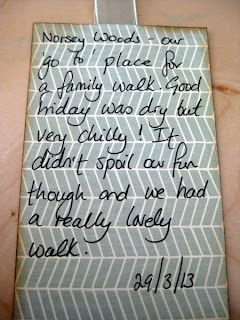 Norsey Woods - our
'go to' place for
a family walk. Good
friday was dry but
very chilly! It
didn't spoil our fun
though and we had
a really lovely
walk.
29/3/13